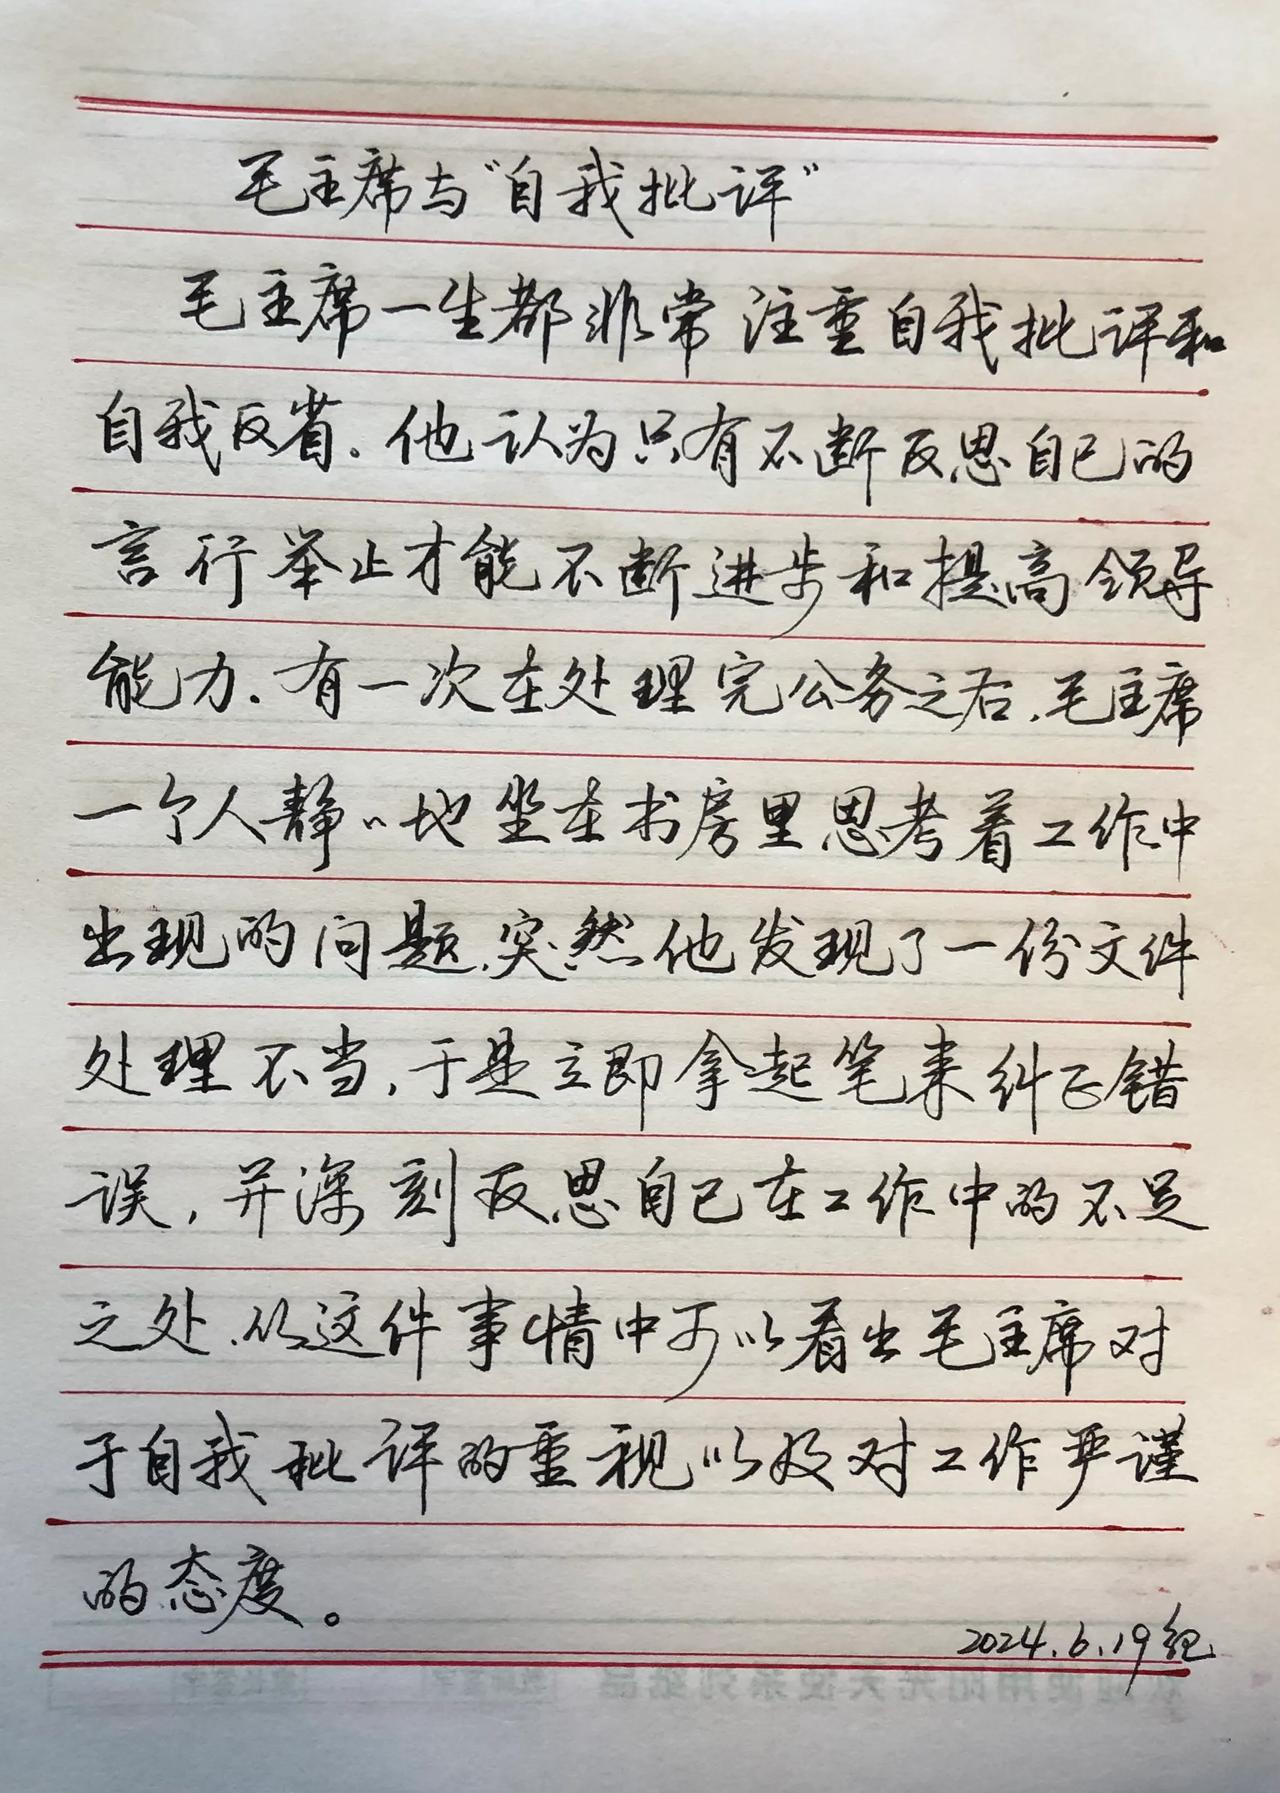 毛主席与“自我批评”
毛主席一生都非常注重自我批评和
自我反省。他认为只有不断反思自己的
言行举止才能不断进步和提高领导
能力.有一次在处理完公务之后,毛主席
一个人静〃地坐在书房里思考着工作中
出现的问题,突然他发现了一份文件
处理不当,于是立即拿起笔来纠正错
误,并深刻反思自己在工作中的不足
之处.从这件事情中可以看出毛主席对
于自我批评的重视以及对工作严谨
的态度。
2024.6.19纪